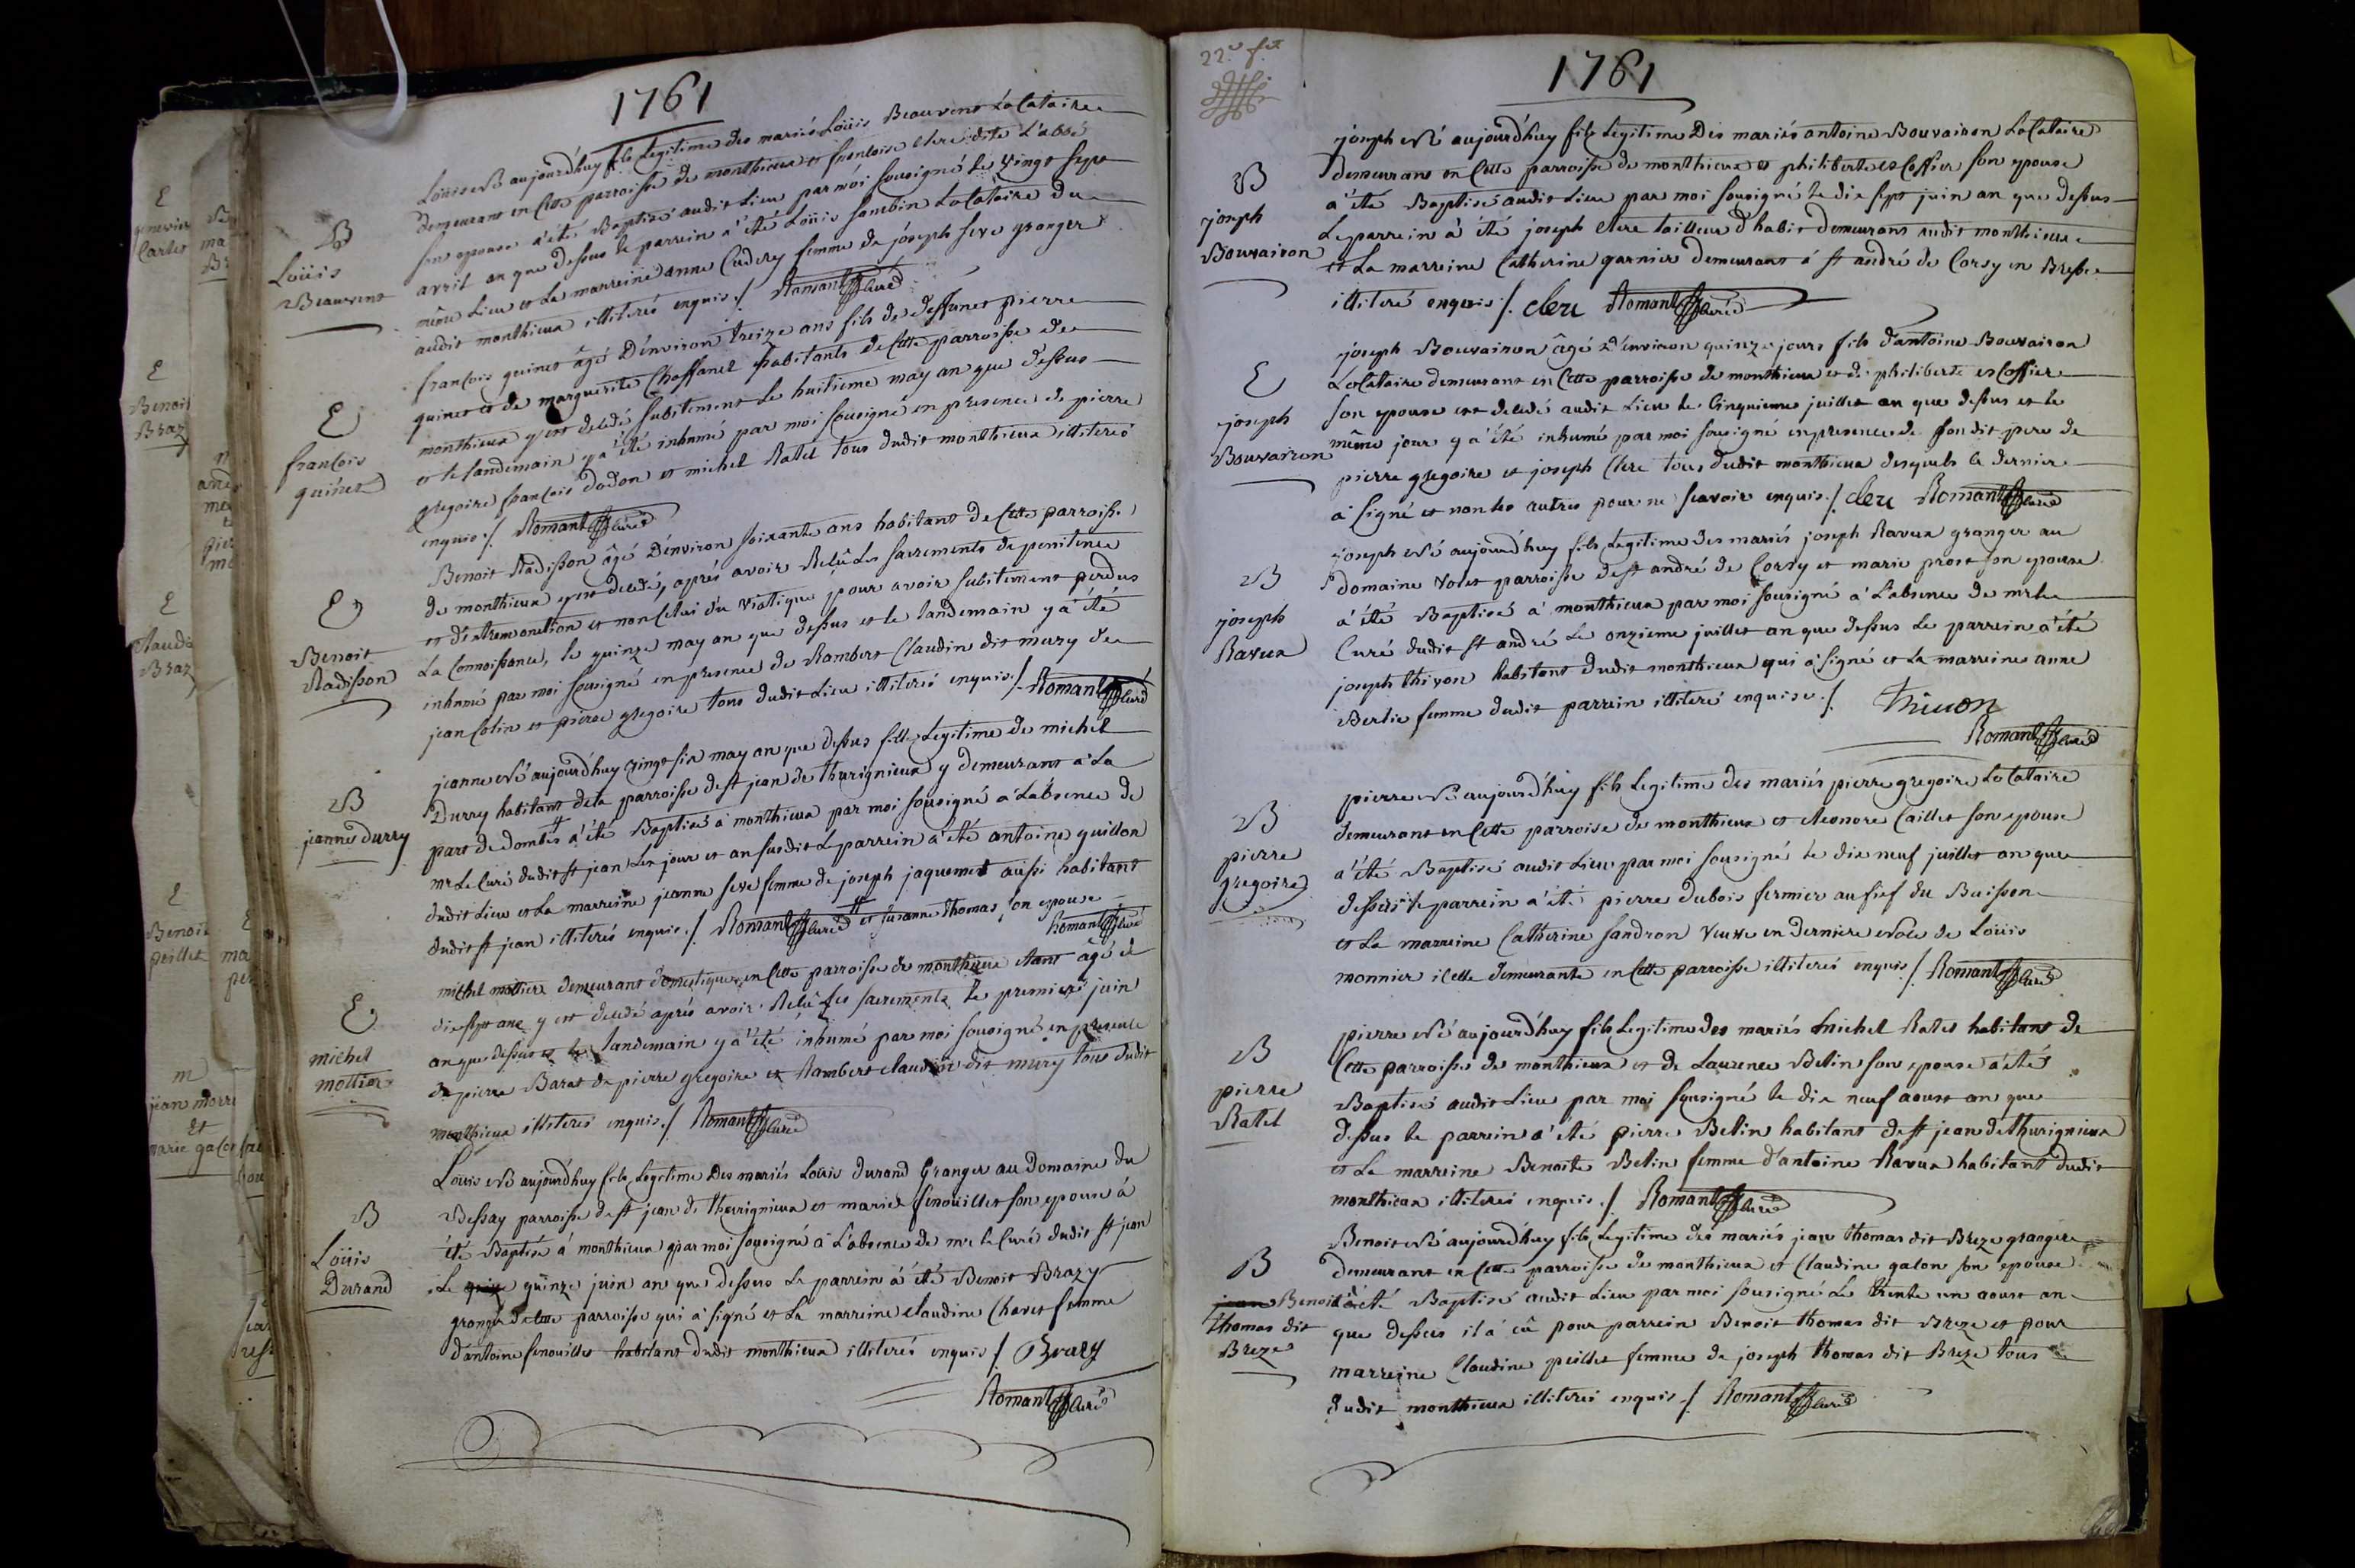 1761
B
Loüis
Beauvent
Loüis né aujourd'huy fils Legitime des mariés Loüis Beauvent Locataire
demeurant en Cette parroisse de monthieux et francoise clere dite L'abbé
son epouse a'été Baptisé audit Lieu par moi sousigné le vingt sept
avril an que dessus le parrein a'été Loüis sambin Locataire du
même Lieu et La marreine anne Cudery femme de joseph seve granger
audit monthieux illiterés enquis ./. Romant Curé
E
francois
quinet
francois quinet âgé D'environ treize ans fils de deffunct pierre
quinet et de marguerite Choffanel habitants de Cette parroisse de
monthieux y est decedé subitement Le huitieme may an que dessus
et le Landemain y a'été inhumé par moi sousigné en presence de pierre
gregoire francois dodon et michel Ratel tous dudit monthieux illiterés
enquis ./. Romant Curé
E
Benoit
Radisson
Benoit Radisson âgé D'environ soixante ans habitant de Cette parroisse
de monthieux y est decedé, aprés avoir Reçû Les sacrements de penitence
et d'extremonction et non Celui du viatique pour avoir subitement perdus
La Connoissance, le quinze may an que dessus et le landemain y a'été
inhumé par moi sousigné en presence de Rambert Claudin dit mury de
jean Colin et pierre gregoire tous dudit Lieu illiterés enquis ./. Romant Curé
B
jeanne durry
jeanne né aujourd'huy vingt six may an que dessus fille Legitime de michel
Durry habitant de la parroisse de st jean de thurignieux y demeurant a La
part de dombes # a'été Baptisé a monthieux par moi sousigné a L'absence de
mr Le Curé dudit st jean Les jour et an susdit Le parrein a'été antoine guillon
dudit Lieu et La marreine jeanne seve femme de joseph jaquemet aussi habitant
dudit st jean illiterés enquis ./. Romant Curé # et suzanne thomas son epouse
Romant Curé
E
michel
mottier
michel mottier demeurant domestique en Cette parroisse de monthieux etant âgé de
dix sept ans y est decedé aprés avoir Reçû ses sacrements le premier juin
an que dessus et le landemain y a'été inhumé par moi sousigné en presence
de pierre Barat de pierre gregoire et Rambert claudin dit mury tous dudit
monthieux illiterés enquis ./. Romant Curé
B
Loüis
Durand
Loüis né aujourd'huy fils Legitime Des mariés Loüis durand Granger au Domaine du
Bessay parroisse de st jean de thurignieux et marie fenouillet son epouse à
été Baptisé à monthieux par moi sousigné a L'absence de mr le Curé dudit st jean
Le quinze juin an que dessus Le parrein à été Benoit Brazy
granger de Cette parroisse qui a signé et La marreine claudine Chavet femme
d'antoine fenouillet habitant dudit monthieux illiterés enquis ./. Brazy
Romant Curé
22e ft
1761
B
joseph
Bouvairon
joseph né aujourd'huy fils Legitime Des mariés antoine Bouvairon Locataire
demeurant en Cette parroisse de monthieux et philiberte escoffier son epouse
a'été Baptisé audit Lieu par moi sousigné le dix sept juin an que dessus
Le parrein à été joseph clere tailleur d'habit demeurant audit monthieux
et La marreine Catherine garnier demeurant à st andré de Corsy en Bresse
illiteré enquis ./. clere Romant Curé
E
joseph
Bouvairon
joseph Bouvairon âgé d'environ quinze jours fils d'antoine Bouvairon
Locataire demeurant en Cette parroisse de monthieux et de philiberte escoffier
son epouse est decedé audit Lieu le Cinquieme juillet an que dessus et le
même jour y a'été inhumé par moi sousigné en presence de sondit pere de
pierre gregoire et joseph Clere tous dudit monthieux desquels le dernier
a signé et non les autres pour ne sçavoir enquis ./. clere Romant Curé
B
joseph
Ravux
joseph né aujourd'huy fils Legitime des mariés joseph Ravux granger au
domaine volet parroisse de st andré de Corsy et marie prost son epouse
à été Baptisé a monthieux par moi sousigné a L'absence de mr le
Curé dudit st andré Le onzieme juillet an que dessus Le parrein a'été
joseph thivon habitant dudit monthieux qui a signé et La marreine anne
Berlie femme dudit parrein illiteré enquise ./. Thivon
Romant Curé
B
pierre
gregoire
pierre né aujourd'huy fils Legitime des mariés pierre gregoire Locataire
demeurant en Cette parroise de monthieux et eleonore Caillet son epouse
a'été Baptisé audit Lieu par moi sousigné le dix neuf juillet an que
dessus le parrein a'été pierre dubois fermier au fief du Buisson
et La marreine Catherine sandron veuve en derniere noce de Loüis
monnier icelle demeurante en Cette parroisse illiterés enquis ./. Romant Curé
B
pierre
Ratel
pierre né aujourd'huy fils Legitime des mariés michel Ratel habitant de
Cette parroisse de monthieux et de Laurence Belin son epouse a'été
Baptisé audit Lieu par moi sousigné le dix neuf aoust an que
dessus le parrein a'été pierre Belin habitant de st jean de thurignieux
et La marreine Benoite Belin femme d'antoine Ravux habitant dudit
monthieux illiterés enquis ./. Romant Curé
B
jean Benoit
thomas dit
Breze
Benoit né aujourd'huy fils Legitime des mariés jean thomas dit Breze granger
demeurant en Cette parroisse de monthieux et Claudine galon son epouse
a'été Baptisé audit Lieu par moi sousigné Le trente un aoust an
que dessus il a eû pour parrein Benoit thomas dit Breze et pour
marreine Claudine peillet femme de joseph thomas dit Breze tous
dudit monthieux illiterés enquis ./. Romant Curé